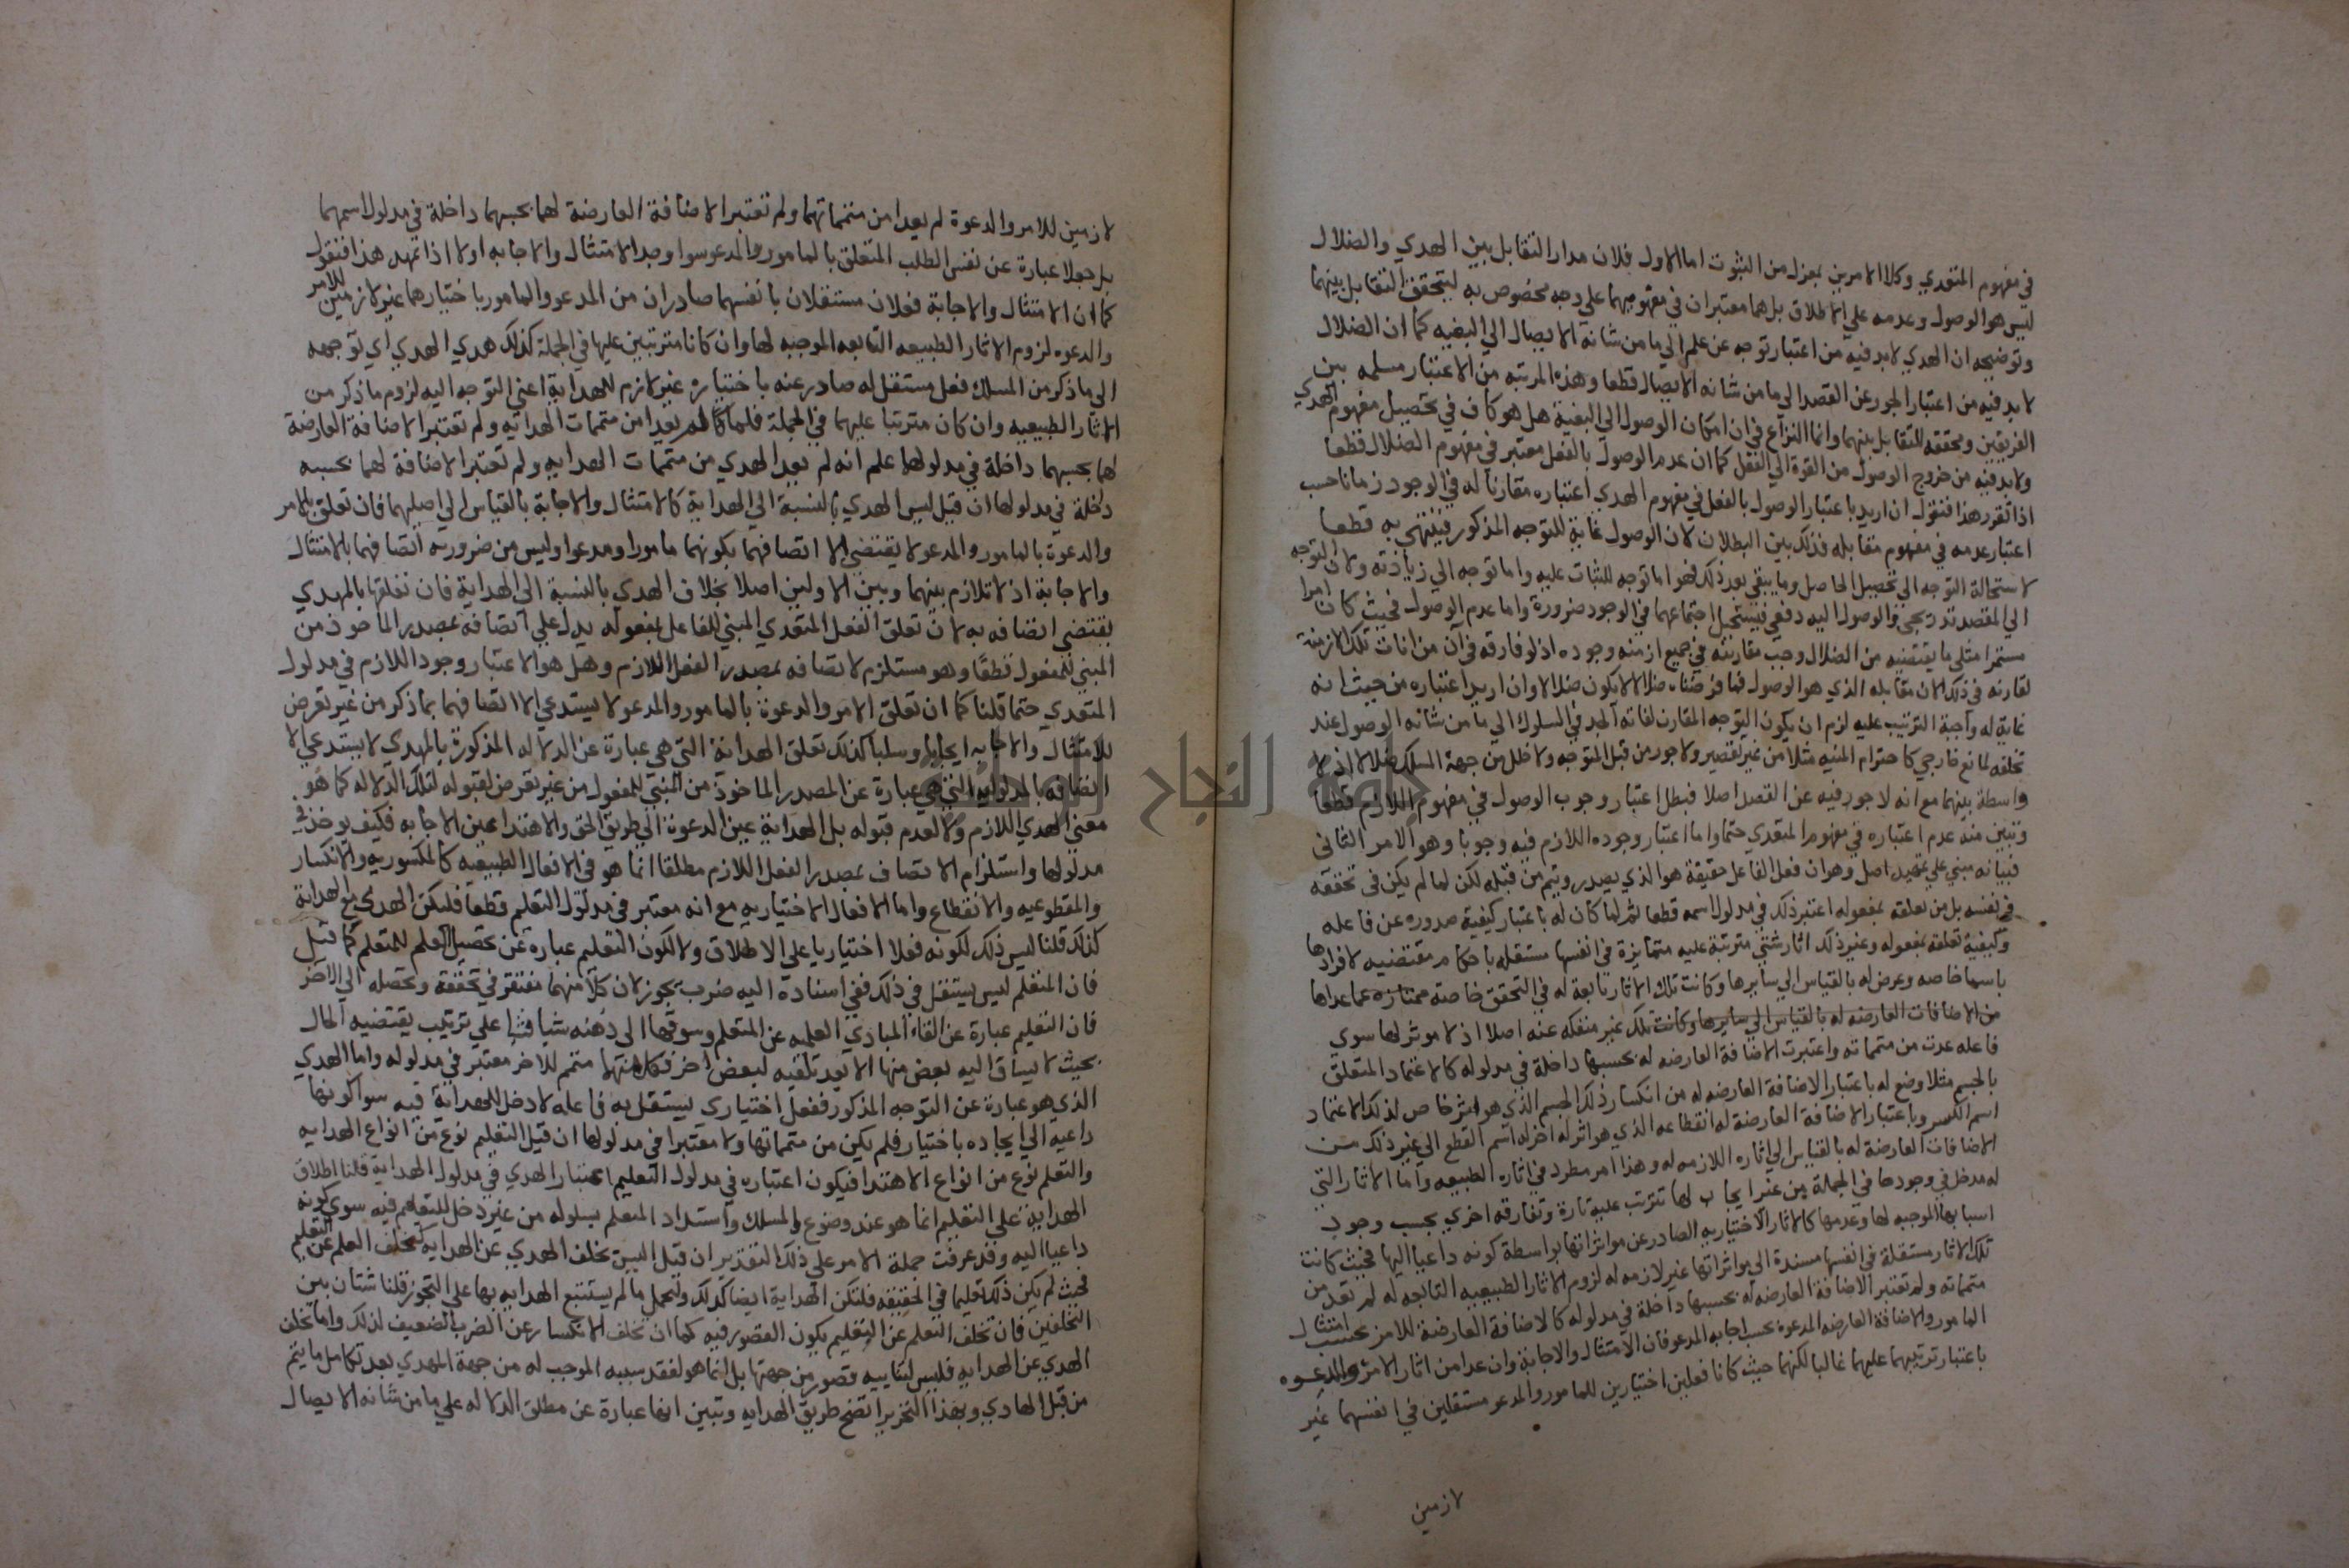 في مفهوم المتعدي وكلا الامرين بمعزل من الثبوت اما الاول فلان مدار التقابل بين الهدي والضلال
ليس هو الوصول وعدمه علي الاطلاق بل هما معتبران في مفهوميهما علي وجه مخصوص به ليتحقق التقابل بينهما
وتوضيحه ان الهدي لابد فيه من اعتبار توجه عن علم الي ما من شانه الايصال الي البغيه كما ان الضلال
لابد فيه من اعتبار الجور عن القصد الي ما من شانه الايصال قطعا وهذه المرتبه من الاعتبار مسلمه بين
الفريقين ومحققه للتقابل بينهما وانما النزاع في ان امكان الوصول الي البغية هل هو كاف في تحصيل مفهوم الهدي
ولابد فيه من خروج الوصول من القوة الي الفعل كما ان عدم الوصول بالفعل معتبر في مفهوم الضلال قطعا
اذا تقرر هذا فنقول ان اريد باعتبار الوصول بالفعل في مفهوم الهدي اعتباره مقارنا له في الوجود زمانا حسب
اعتبار عدمه في مفهوم مقابله فذلك بين البطلان لان الوصول غاية للتوجه المذكور فينتهي به قطعا
لاستحالة التوجه الي تحصيل الحاصل وما يبقي بعد ذلك فهو اما توجه للثبات عليه واما توجه الي زيادته ولان التوجه
الي المقصد تدريجي والوصول اليه دفعي فيستحيل اجتماعهما في الوجود ضرورة واما عدم الوصول فحيث كان امرا
مستمرا مثل ما يقتضيه من الضلال وجب مقارنته في جميع ازمنه وجوده اذ لو فارقه في ان من انات تلك الازمنة
لقارنه في ذلك الان مقابله الذي هو الوصول فما فرضناه ضلالا لا يكون ضلالا وان اريد اعتباره من حيث انه
غاية له واجبة الترتيب عليه لزم ان يكون التوجه المقارن لغاية الجد في السلوك الي ما من شانه الوصول عند
تخلفه لمانع خارجي كاحترام المنيه مثلا من غير تقصير ولا جور من قبل المتوجه ولا خلل من جهة المسلك ضلالا اذ لا
واسطة بينهما مع انه لا جور فيه عن القصد اصلا فبطل اعتبار وجوب الوصول في مفهوم اللازم قطعا
وتبين منه عدم اعتباره في مفهوم المتعدي حتما واما اعتبار وجود اللازم فيه وجوبا وهو الامر الثاني
فبيانه مبني علي تمهيد اصل وهو ان فعل الفاعل حقيقة هو الذي يصدر ويتم من قبله لكن لما لم يكن في تحققه
في نفسه بل من تعلقه بمفعوله اعتبر ذلك في مدلول اسمه قطعا ثم لما كان له باعتبار كيفية صدوره عن فاعله
وكيفية تعلقه بمفعوله وغير ذلك اثار شتي مترتبة عليه متمايزة في انفسها مستقله باحكام مقتضيه لافرادها
باسما خاصه وعرض له بالقياس الي سايرها وكانت تلك الاثار تابعة له في التحقق خاصة ممتازه عما عداها
من الاضافات العارضه له بالقياس الي سايرها وكانت تلك غير منفكه عنه اصلا اذ لا موثر لها سوي
فاعله عدت من متمماته واعتبرت الاضافة العارضه له بحسبها داخلة في مدلوله كالاعتماد المتعلق
بالجسم مثلا وضع له باعتبار الاضافة العارضه له من انكسار ذلك الجسم الذي هو اثر خاص لذلك الاعتماد
اسم الكسر وباعتبار الاضافة العارضة له انقطاعه الذي هو اثر له اخر له اسم القطع الي غير ذلك من
الاضافات العارضة له بالقياس الي اثاره اللازمه له وهذا امر مطرد في اثاره الطبيعيه واما الاثار التي
له مدخل في وجودها في الجملة من غير ايجاب لها تترتب عليه تارة وتفارقه اخري بحسب وجود
اسبابها الموجبه لها وعدمها كالاثار الاختياريه الصادر عن مواثراتها بواسطة كونه داعيا اليها فحيث كانت
تلك الاثار مستقلة في انفسها مسندة الي مواثراتها غير لازمه له لزوم الاثار الطبيعيه التابعه له لم تعد من
متمماته ولم تعتبر الاضافة العارضه له بحسبها داخلة في مدلوله كالاضافة العارضة للامر بحسب امتثال
المامور والاضافة العارضه الدعوة بحسب اجابه المدعو فان الامتثال والاجابة وان عدا من اثار الامر والدعوه
باعتبار ترتيبهما عليهما غالبا لكنهما حيث كانا فعلين اختيارين للمامور والمدعو مستقلين في انفسهما غير
لازمين
لازمين للامر والدعوة لم يعدا من متمماتهما ولم تعتبر الاضافة العارضة لهما بحسبهما داخلة في مدلول اسمهما
بل جعلا عبارة عن نفس الطلب المتعلق بالمامور والمدعو سوا وجد الامتثال والاجابه اولا اذا تمهد هذا فنقول
كما ان الامتثال والاجابة فعلان مستقلان بانفسهما صادران من المدعو والمامور باختيارهما غير لازمين للامر
والدعوه لزوم الاثار الطبيعه التابعه الموجبه لها وان كانا مترتبين عليها في الجملة كذلك هدي الهدي اي توجهه
الي ما ذكر من المسلك فعل مستقل له صادر عنه باختياره غير لازم للهداية اعني التوجه اليه لزوم ما ذكر من
الاثار الطبيعيه وان كان مترتبا عليهما في الجملة فلما كما لم يعدا من متممات الهدايه ولم تعتبر الاضافة العارضة
لهما بحسبهما داخلة في مدلولهما علم انه لم يعد الهدي من متممات الهدايه ولم تعتبر الاضافة لهما بحسبه
داخلة في مدلولها ان قيل ليس الهدي بالنسبة الي الهداية كالامتثال والاجابة بالقياس الي اصليهما فان تعلق الامر
والدعوة بالمامور والمدعو لا يقتضي الا اتصافهما بكونهما مامورا ومدعوا وليس من ضروريه اتصافهما بالامتثال
والاجابة اذ لا تلازم بينهما وبين الاولين اصلا بخلاف الهدي بالنسبة الي الهداية فان تعلقها بالمهدي
يقتضي اتصافه به لان تعلق الفعل المتعدي المبني للفاعل بمفعوله يدل علي اتصافه بمصدر الماخوذ من
المبني للمفعول قطعا وهو مستلزم لاتصافه بمصدر الفعل اللازم وهل هو الاعتبار وجود اللازم في مدلول
المتعدي حتما قلنا كما ان تعلق الامر والدعوة بالمامور والمدعو لا يستدعي الا اتصافهما بما ذكر من غير تعرض
للامتثال والاجابه ايجابا وسلبا كذلك تعلق الهداية التي هي عبارة عن الدلاله المذكورة بالمهدي لا يستدعي الا
اتصافه بالمدلوليه التي هي عبارة عن المصدر الماخوذ من المبني للمفعول من غير تعرض لقبوله لتلك الدلاله كما هو
معني الهدي اللازم ولا لعدم قبوله بل الهداية عين الدعوة الي طريق الحق والاهتدا عين الاجابه فكيف يوخذ في
مدلولها واستلزام الاتصاف بمصدر الفعل اللازم مطلقا انما هو في الافعال الطبيعيه كالمكسوريه والانكسار
والمقطوعيه والانقطاع واما الافعال الاختياريه مع انه معتبر في مدلول التعليم قطعا فليكن الهدي مع الهداية
كذلك قلنا ليس ذلك لكونه فعلا اختياريا علي الاطلاق ولا لكون التعليم عبارة عن تحصيل العلم للمتعلم كما قيل
فان المتعلم ليس يستقل في ذلك ففي اسناده اليه ضرب تجوز لان كلا منهما مفتقر في تحققه وتحصله الي الاخر
فان التعليم عبارة عن القاء المبادي العلميه عن المتعلم وسوقها الي ذهنه شيا فشيا علي ترتيب يقتضيه الحال
بحيث لا يساق اليه بعض منها الا بعد تلقيه لبعض اخر فكل منهما متمم للاخر معتبر في مدلوله واما الهدي
الذي هو عبارة عن التوجه المذكور ففعل اختياري يستقل به فاعله لا دخل للهداية فيه سوا كونها
داعيه الي ايجاده باختيار فلم يكن من متمماتها ولا معتبرا في مدلولها ان قيل التعليم نوع من انواع الهدايه
والتعلم نوع من انواع الاهتدا فيكون اعتباره في مدلول التعليم اعتبار الهدي في مدلول الهداية قلنا اطلاق
الهدايه علي التعليم انما هو عند وضوع المسلك واستداد المتعلم بسلوله من غير دخل للتعليم فيه سوي كونه
داعيا اليه وقد عرفت جملة الامر علي ذلك التقدير ان قيل اليس تخلف الهدي عن الهدايه كتخلف العلم عن التعليم
فحيث لم يكن ذلك تعليما في الحقيقه فلتكن الهداية ايضا كذلك وليحمل ما لم يستتبع الهدايه بها علي التجوز قلنا شتان بين
التخلفين فان تخلف التعلم عن التعليم يكون لقصور فيه كما ان تخلف الانكسار عن الضرب الضعيف لذلك واما تخلف
الهدي عن الهدايه فليس لشايبه قصور من جهتها بل انما هو لفقد سببه الموجب له من جهة المهدي بعد تكامل ما يتم
من قبل الهادي وبهذا التحرير اتضح طريق الهدايه وتبين انها عبارة عن مطلق الدلاله علي ما من شانه الايصال
جامعة النجاح الوطنية